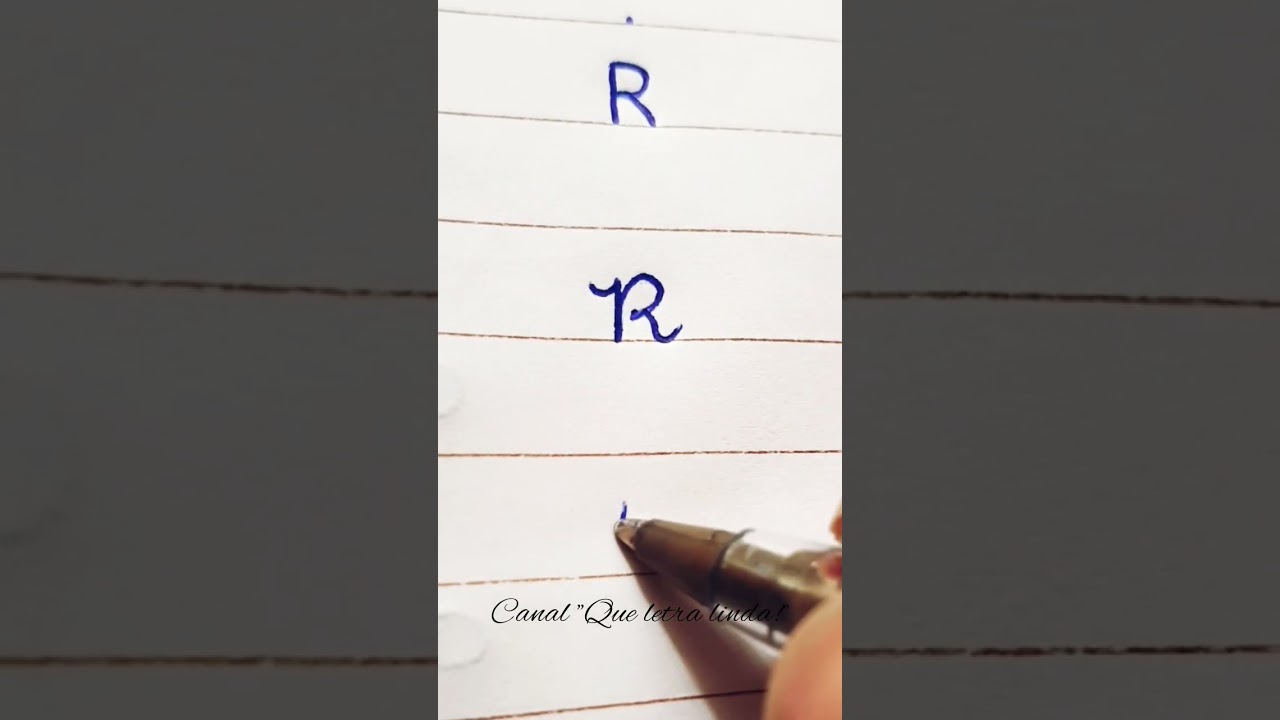 R
R
Canal "Que letra linda!"